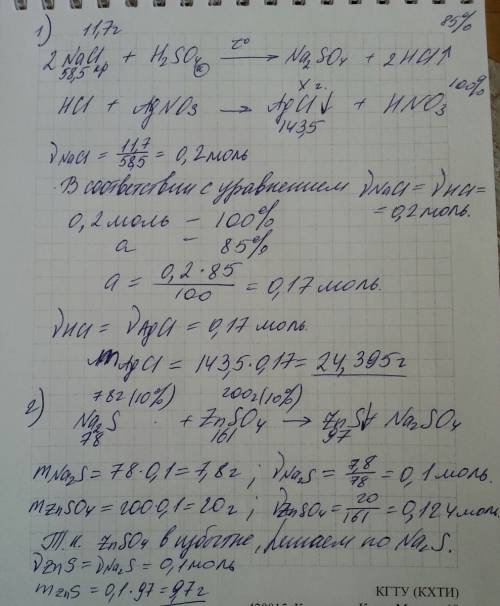 1) 11,7г 85%
2NaCl + H₂SO₄(к) —t°→ Na₂SO₄ + 2HCl↑
58,5 гр
x г. 100%
HCl + AgNO₃ → AgCl↓ + HNO₃
143,5
νNaCl = 11,7/58,5 = 0,2 моль
В соответствии с уравнением νNaCl = νHCl =
= 0,2 моль.
0,2 моль – 100%
a – 85%
a = 0,2·85/100 = 0,17 моль.
νHCl = νAgCl = 0,17 моль.
mAgCl = 143,5·0,17 = 24,395г
78г (10%) 200г (10%)
2) Na₂S + ZnSO₄ → ZnS↓ Na₂SO₄
78 161 97
mNa₂S = 78·0,1 = 7,8г; νNa₂S = 7,8/78 = 0,1 моль.
mZnSO₄ = 200·0,1 = 20г; νZnSO₄ = 20/161 = 0,124 моль.
Т.к. ZnSO₄ в избытке, решаем по Na₂S.
νZnS = νNa₂S = 0,1 моль
mZnS = 0,1·97 = 9,7г
КГТУ (КХТИ)